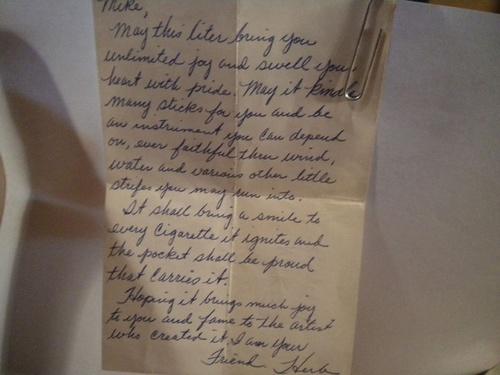 Mike,
May this liter bring you
unlimited joy and swell your
heart with pride. May it kindle
many sticks for you and be
an instrument you can depend
on, ever faithful thru wind,
water and various other little
strifes you may run into.
It shall bring a smile to
every cigarette it ignites and
the pocket shall be proud
that carries it.
Hoping it brings much joy
to you and fame to the artist
who created it. I am your
Friend Herb